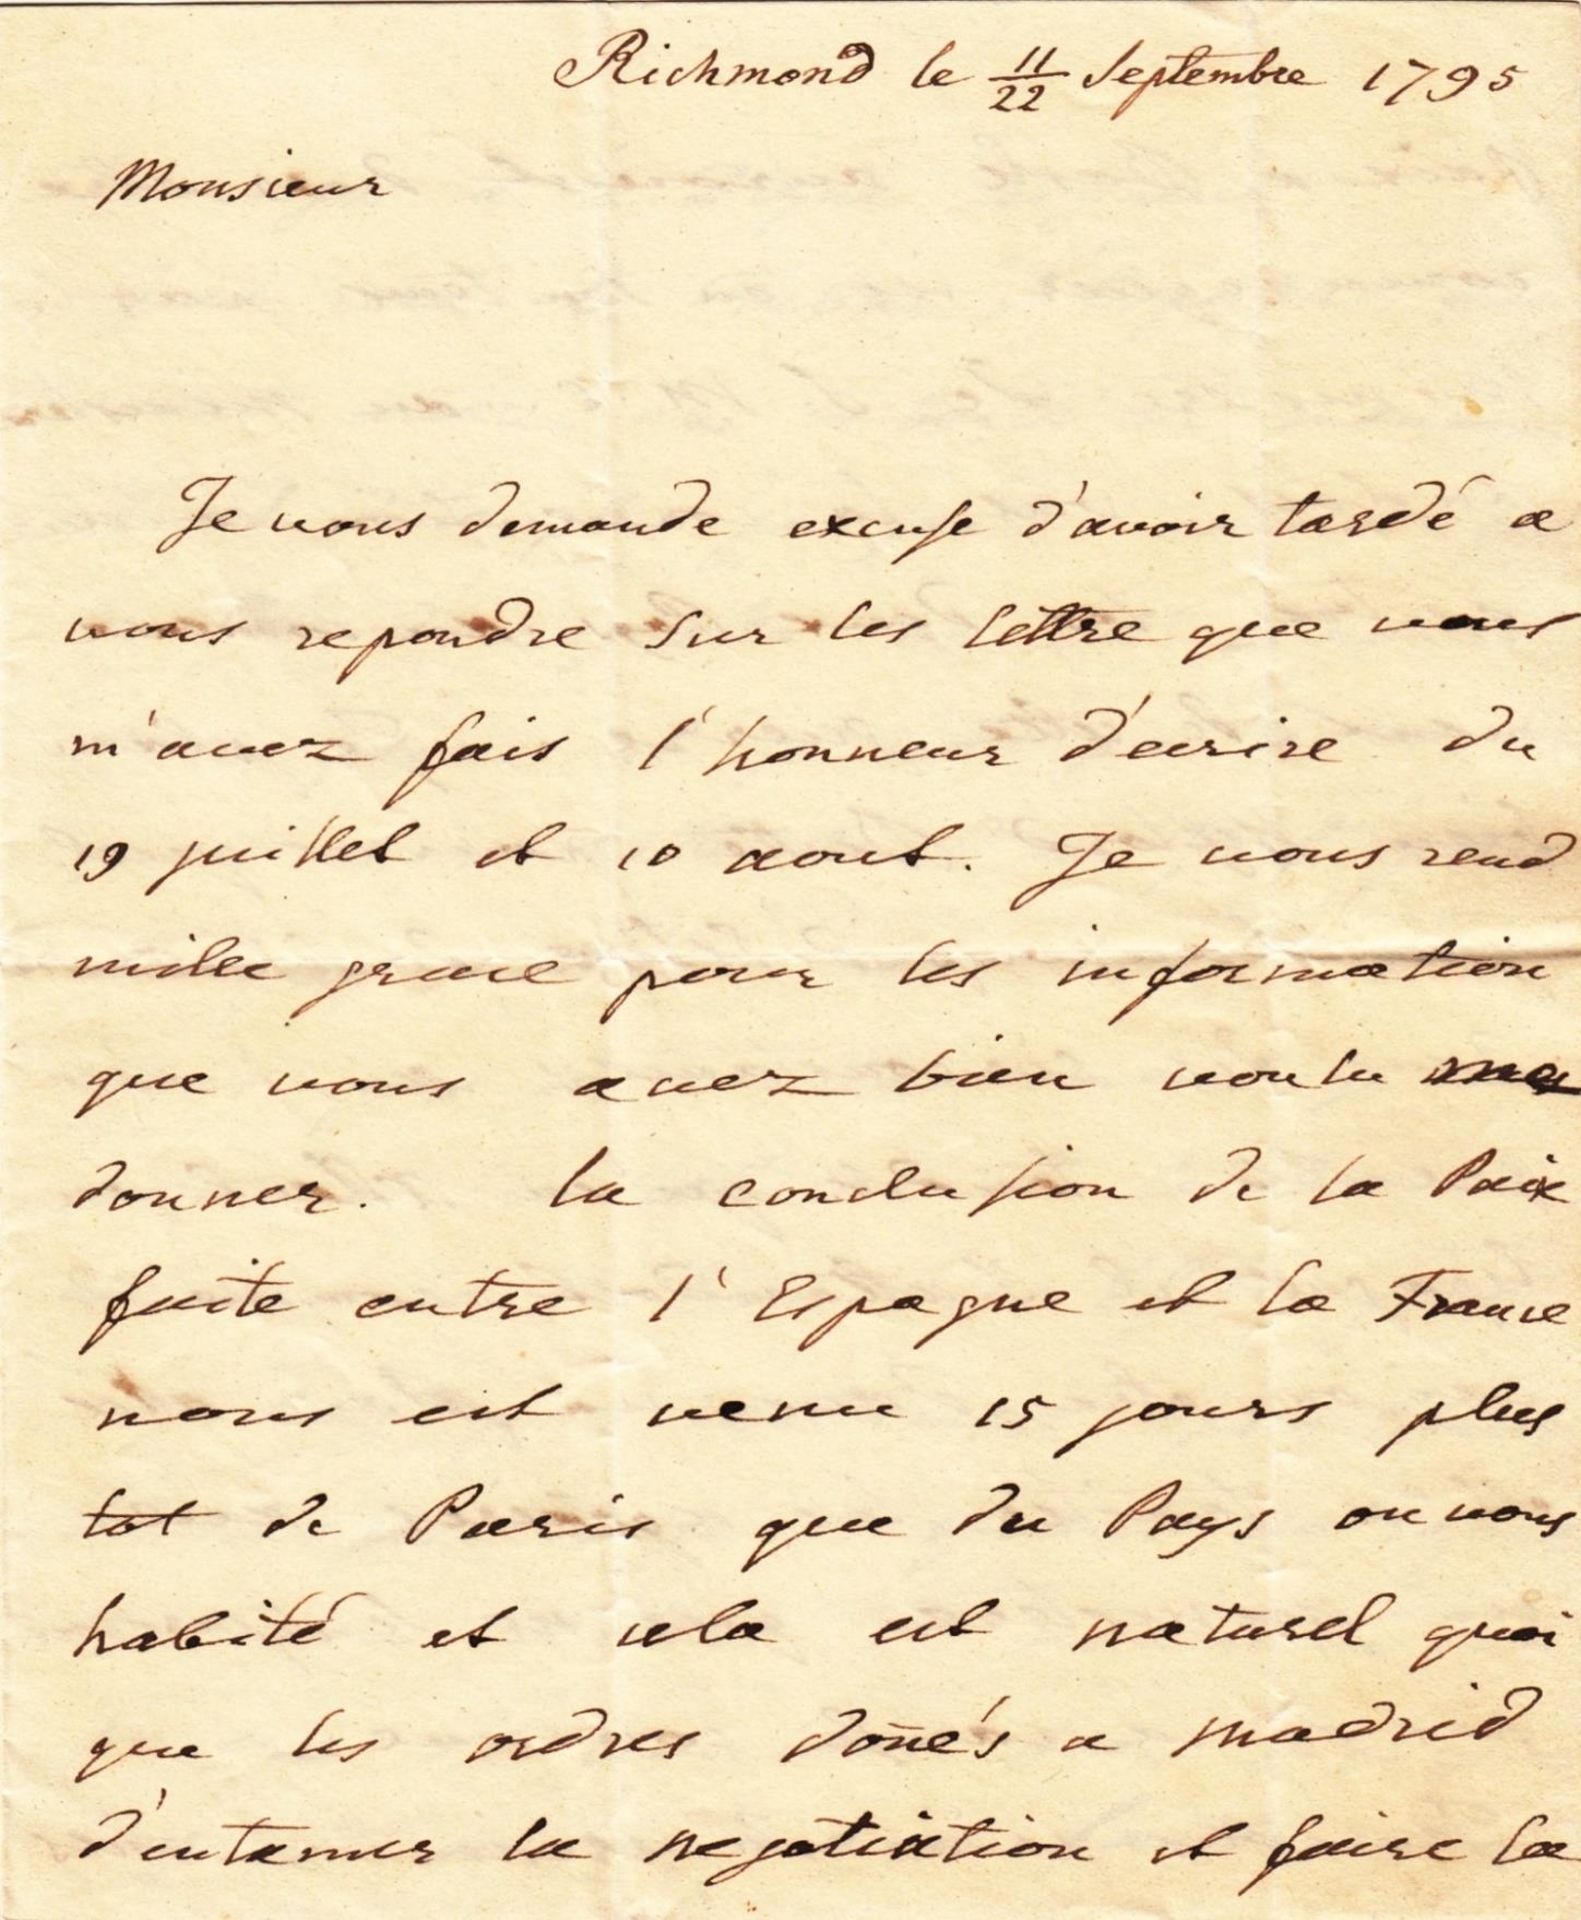 Richmond le 11/22 Septembre 1795
Monsieur
Je vous demande excuse d'avoir tardé a
vous repondre sur les lettre que vous
m'avez fais l'honneur d'ecrire du
19 juillet et 10 aout. Je vous rend
milee grace pour les information
que vous avez bien voulu me
donner. la conclusion de la Paix
faite entre l'Espagne et la France
nous est venu 15 jours plus
tot de Paris que du Pays ou vous
habité et cela est naturel quoi
que les ordres doñés a Madrid
d'entamer la negotiation et faire la